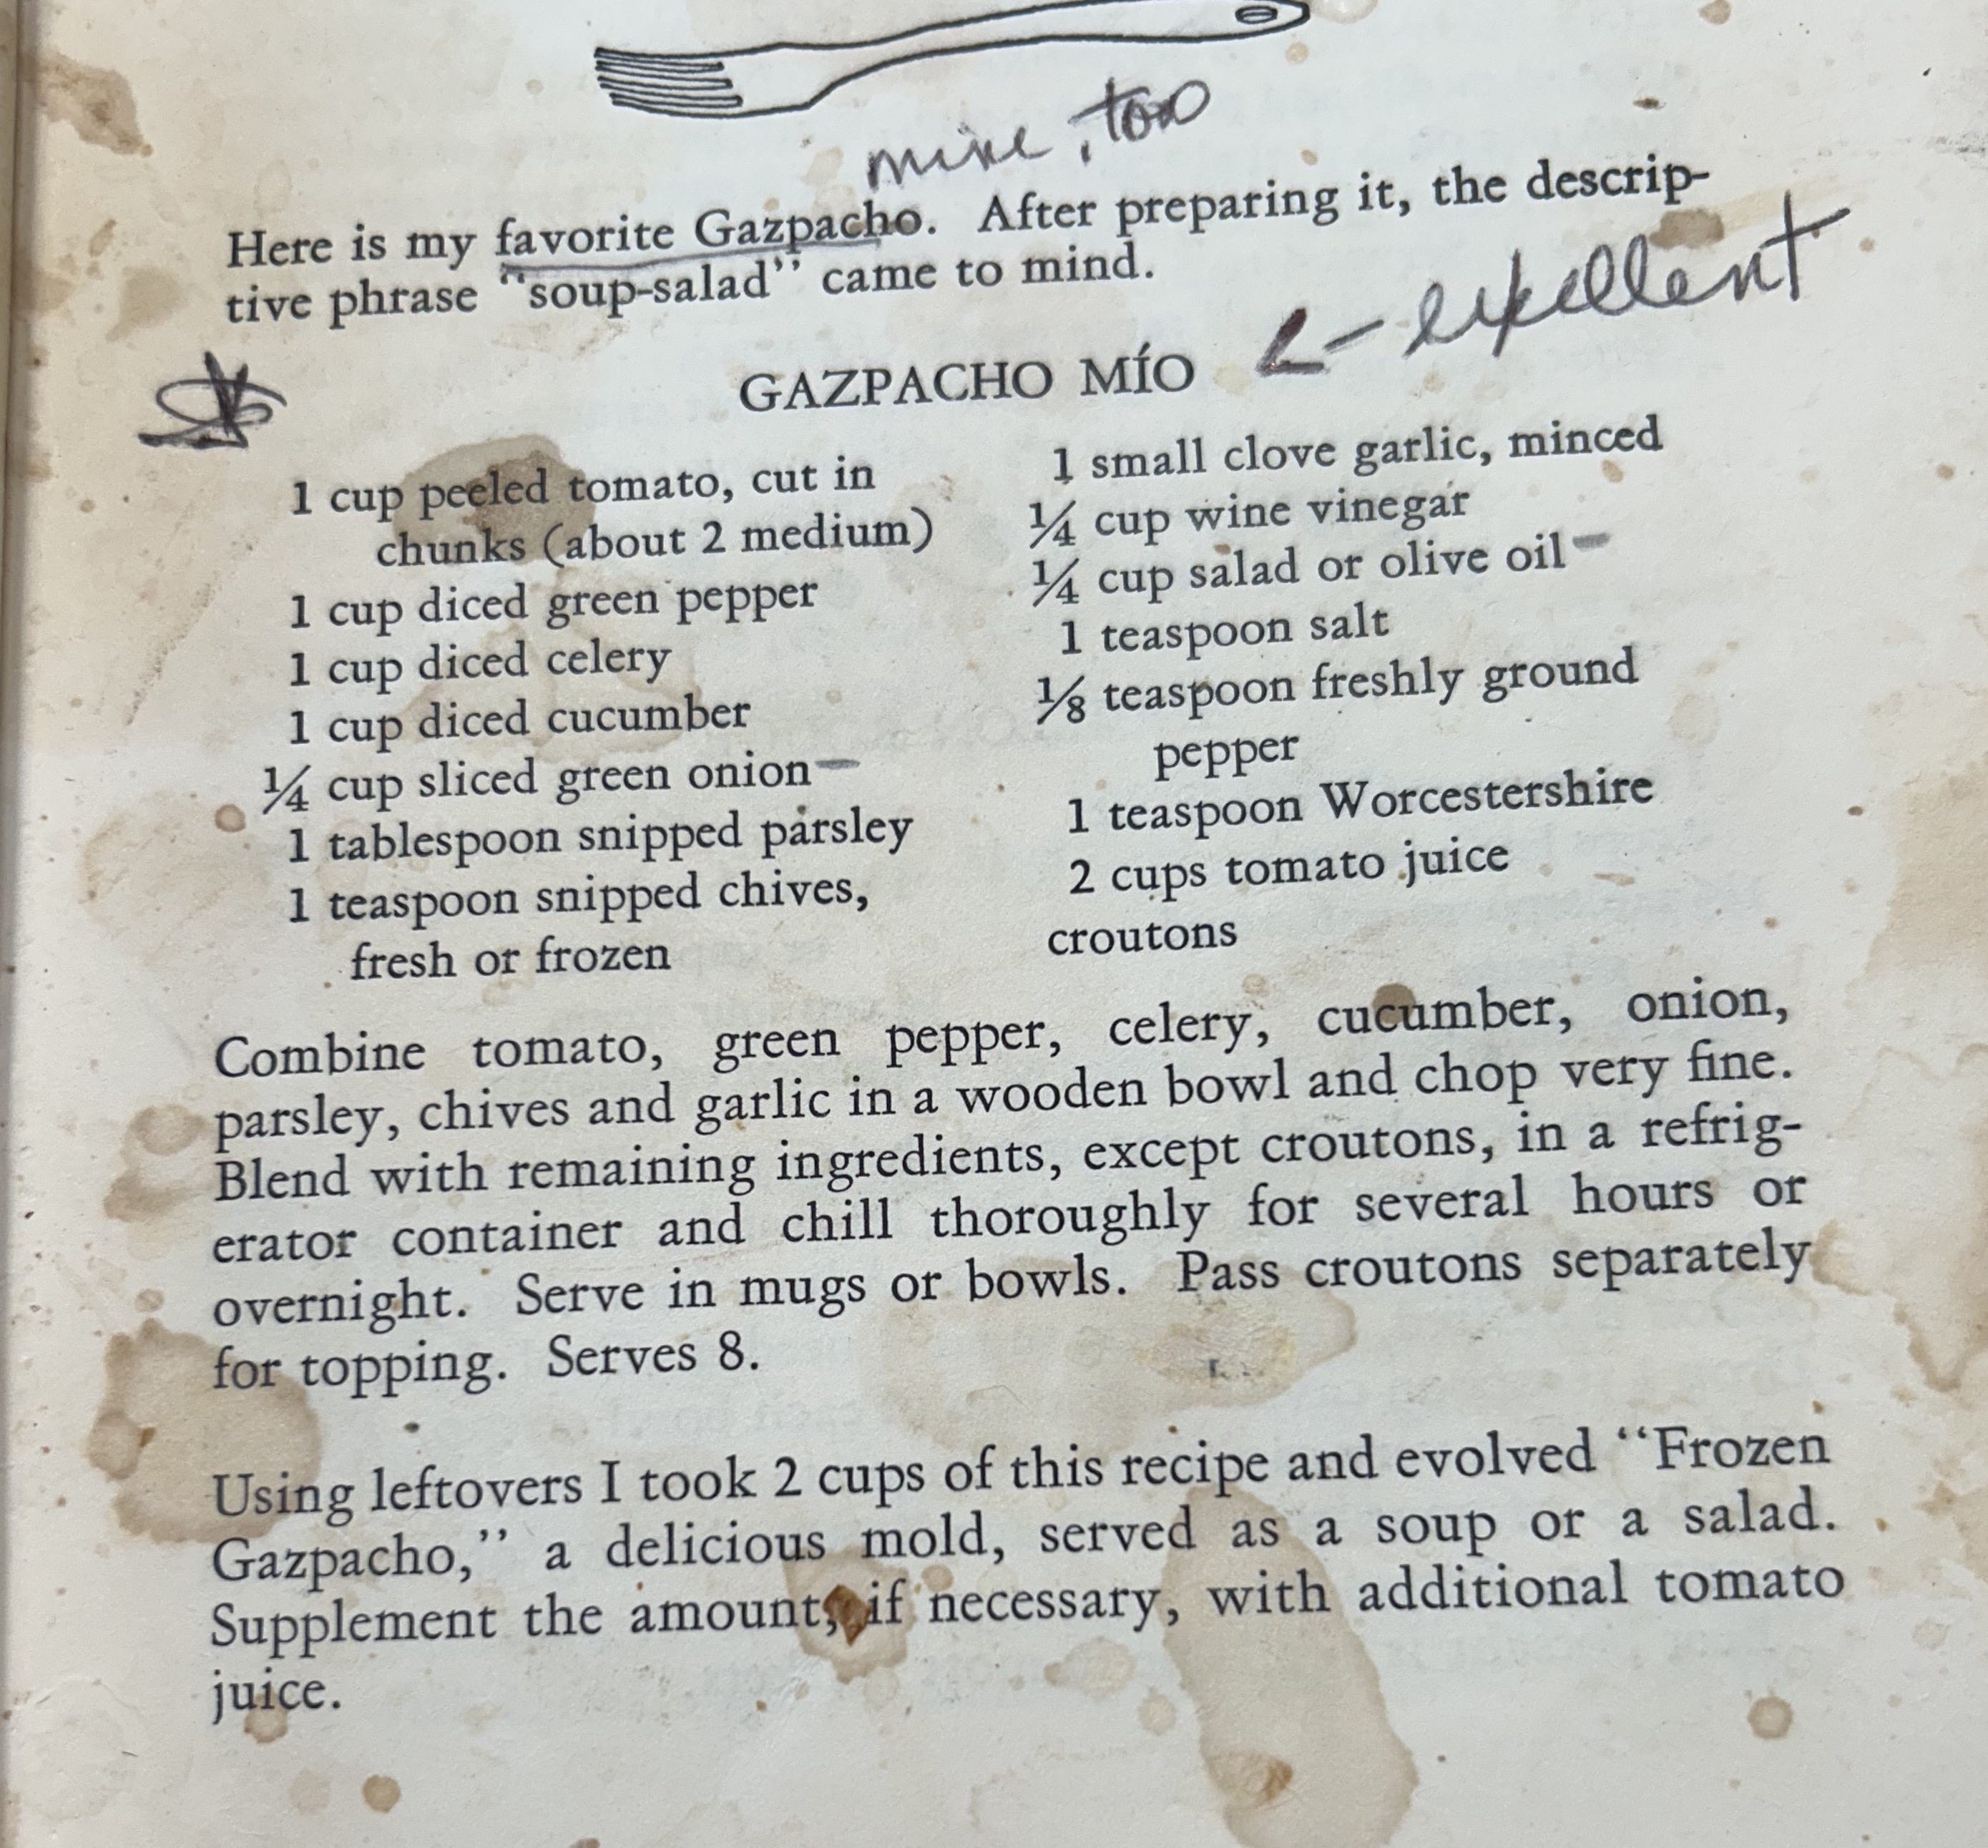 mine, too
Here is my favorite Gazpacho. After preparing it, the descrip-
tive phrase "soup-salad" came to mind.
← exellent
GAZPACHO MÍO
1 cup peeled tomato, cut in
chunks (about 2 medium)
1 cup diced green pepper
1 cup diced celery
1 cup diced cucumber
¼ cup sliced green onion
1 tablespoon snipped parsley
1 teaspoon snipped chives,
fresh or frozen
1 small clove garlic, minced
¼ cup wine vinegar
¼ cup salad or olive oil
1 teaspoon salt
⅛ teaspoon freshly ground
pepper
1 teaspoon Worcestershire
2 cups tomato juice
croutons
Combine tomato, green pepper, celery, cucumber, onion,
parsley, chives and garlic in a wooden bowl and chop very fine.
Blend with remaining ingredients, except croutons, in a refrig-
erator container and chill thoroughly for several hours or
overnight. Serve in mugs or bowls. Pass croutons separately
for topping. Serves 8.
Using leftovers I took 2 cups of this recipe and evolved "Frozen
Gazpacho," a delicious mold, served as a soup or a salad.
Supplement the amount, if necessary, with additional tomato
juice.